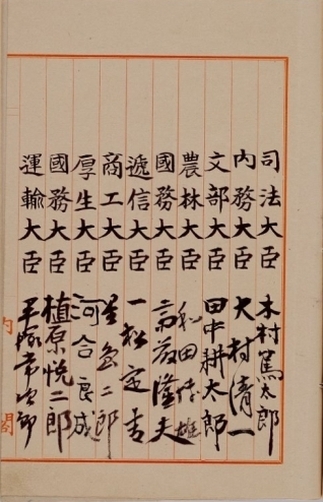 司法大臣 木村篤太郎
内務大臣 大村清一
文部大臣 田中耕太郎
農林大臣 和田博雄
國務大臣 斎藤隆夫
遞信大臣 一松定吉
商工大臣 星島二郎
厚生大臣 河合良成
國務大臣 植原悦二郎
運輸大臣 平塚常次郎
内閣